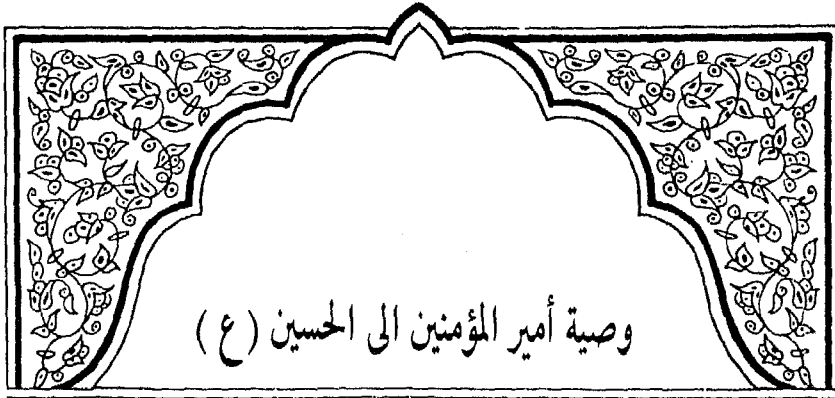 وصية أمير المؤمنين الى الحسين (ع)